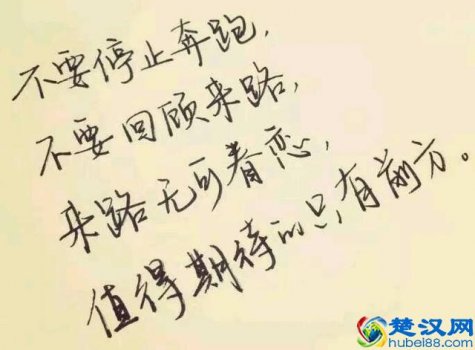 不要停止奔跑,
不要回顾来路,
来路无可眷恋,
值得期待的只有前方。
楚汉网
hubei88.com